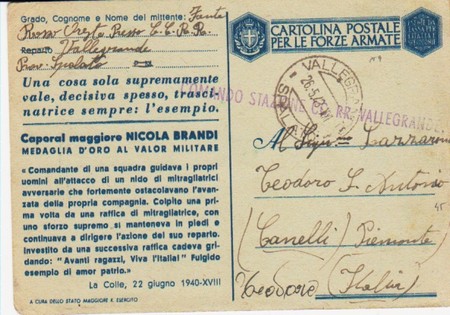 Grado, Cognome e Nome del mittente: Fante
Rosso Presso C.C. R.R.
Reparto Vallegrande
Prov. Spalato
Una cosa sola supremamente
vale, decisiva spesso, trasci-
natrice sempre: l'esempio.
Caporal maggiore NICOLA BRANDI
MEDAGLIA D'ORO AL VALOR MILITARE
«Comandante di una squadra guidava i propri
uomini all'attacco di un nido di mitragliatrici
avversarie che fortemente ostacolavano l'avan-
zata della propria compagnia. Colpito una pri-
ma volta da una raffica di mitragliatrice, con
uno sforzo supremo si manteneva in piedi e
continuava a dirigere l'azione del suo reparto.
Investito da una successiva raffica cadeva gri-
dando: "Avanti ragazzi, Viva l'Italia!" Fulgido
esempio di amor patrio.»
La Colle, 22 giugno 1940-XVIII
A CURA DELLO STATO MAGGIORE R. ESERCITO
CARTOLINA POSTALE
PER LE FORZE ARMATE
VALLEGR
26.5.43
COMANDO STAZIONE CC. RR. VALLEGRANDE
Al Sig. Lazzarone
Teodoro S. Antonio
45
(Canelli) Piemonte
Teodoro (Italia)